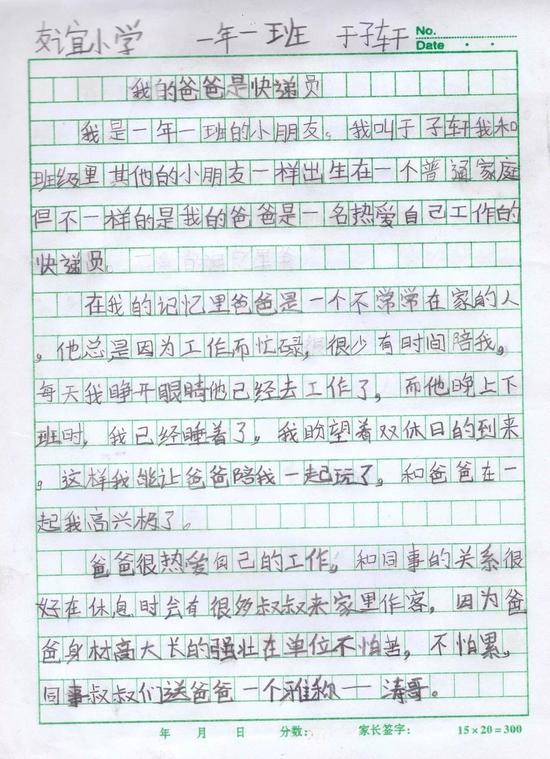 友谊小学 一年一班 于子轩 No.
Date
我的爸爸是快递员
我是一年一班的小朋友。我叫于子轩我和
班级里其他的小朋友一样出生在一个普通家庭
但不一样的是我的爸爸是一名热爱自己工作的
快递员。
在我的记忆里爸爸是一个不常常在家的人
，他总是因为工作而忙碌，很少有时间陪我，
每天我睁开眼睛他已经去工作了，而他晚上下
班时，我已经睡着了。我盼望着双休日的到来
。这样我能让爸爸陪我一起玩了，和爸爸在一
起我高兴极了。
爸爸很热爱自己的工作，和同事的关系很
好在休息时会有很多叔叔来家里作客，因为爸
爸身材高大长的强壮在单位不怕苦，不怕累，
同事叔叔们送爸爸一个雅称一涛哥。
年 月 日 分数： 家长签字： 15×20=300